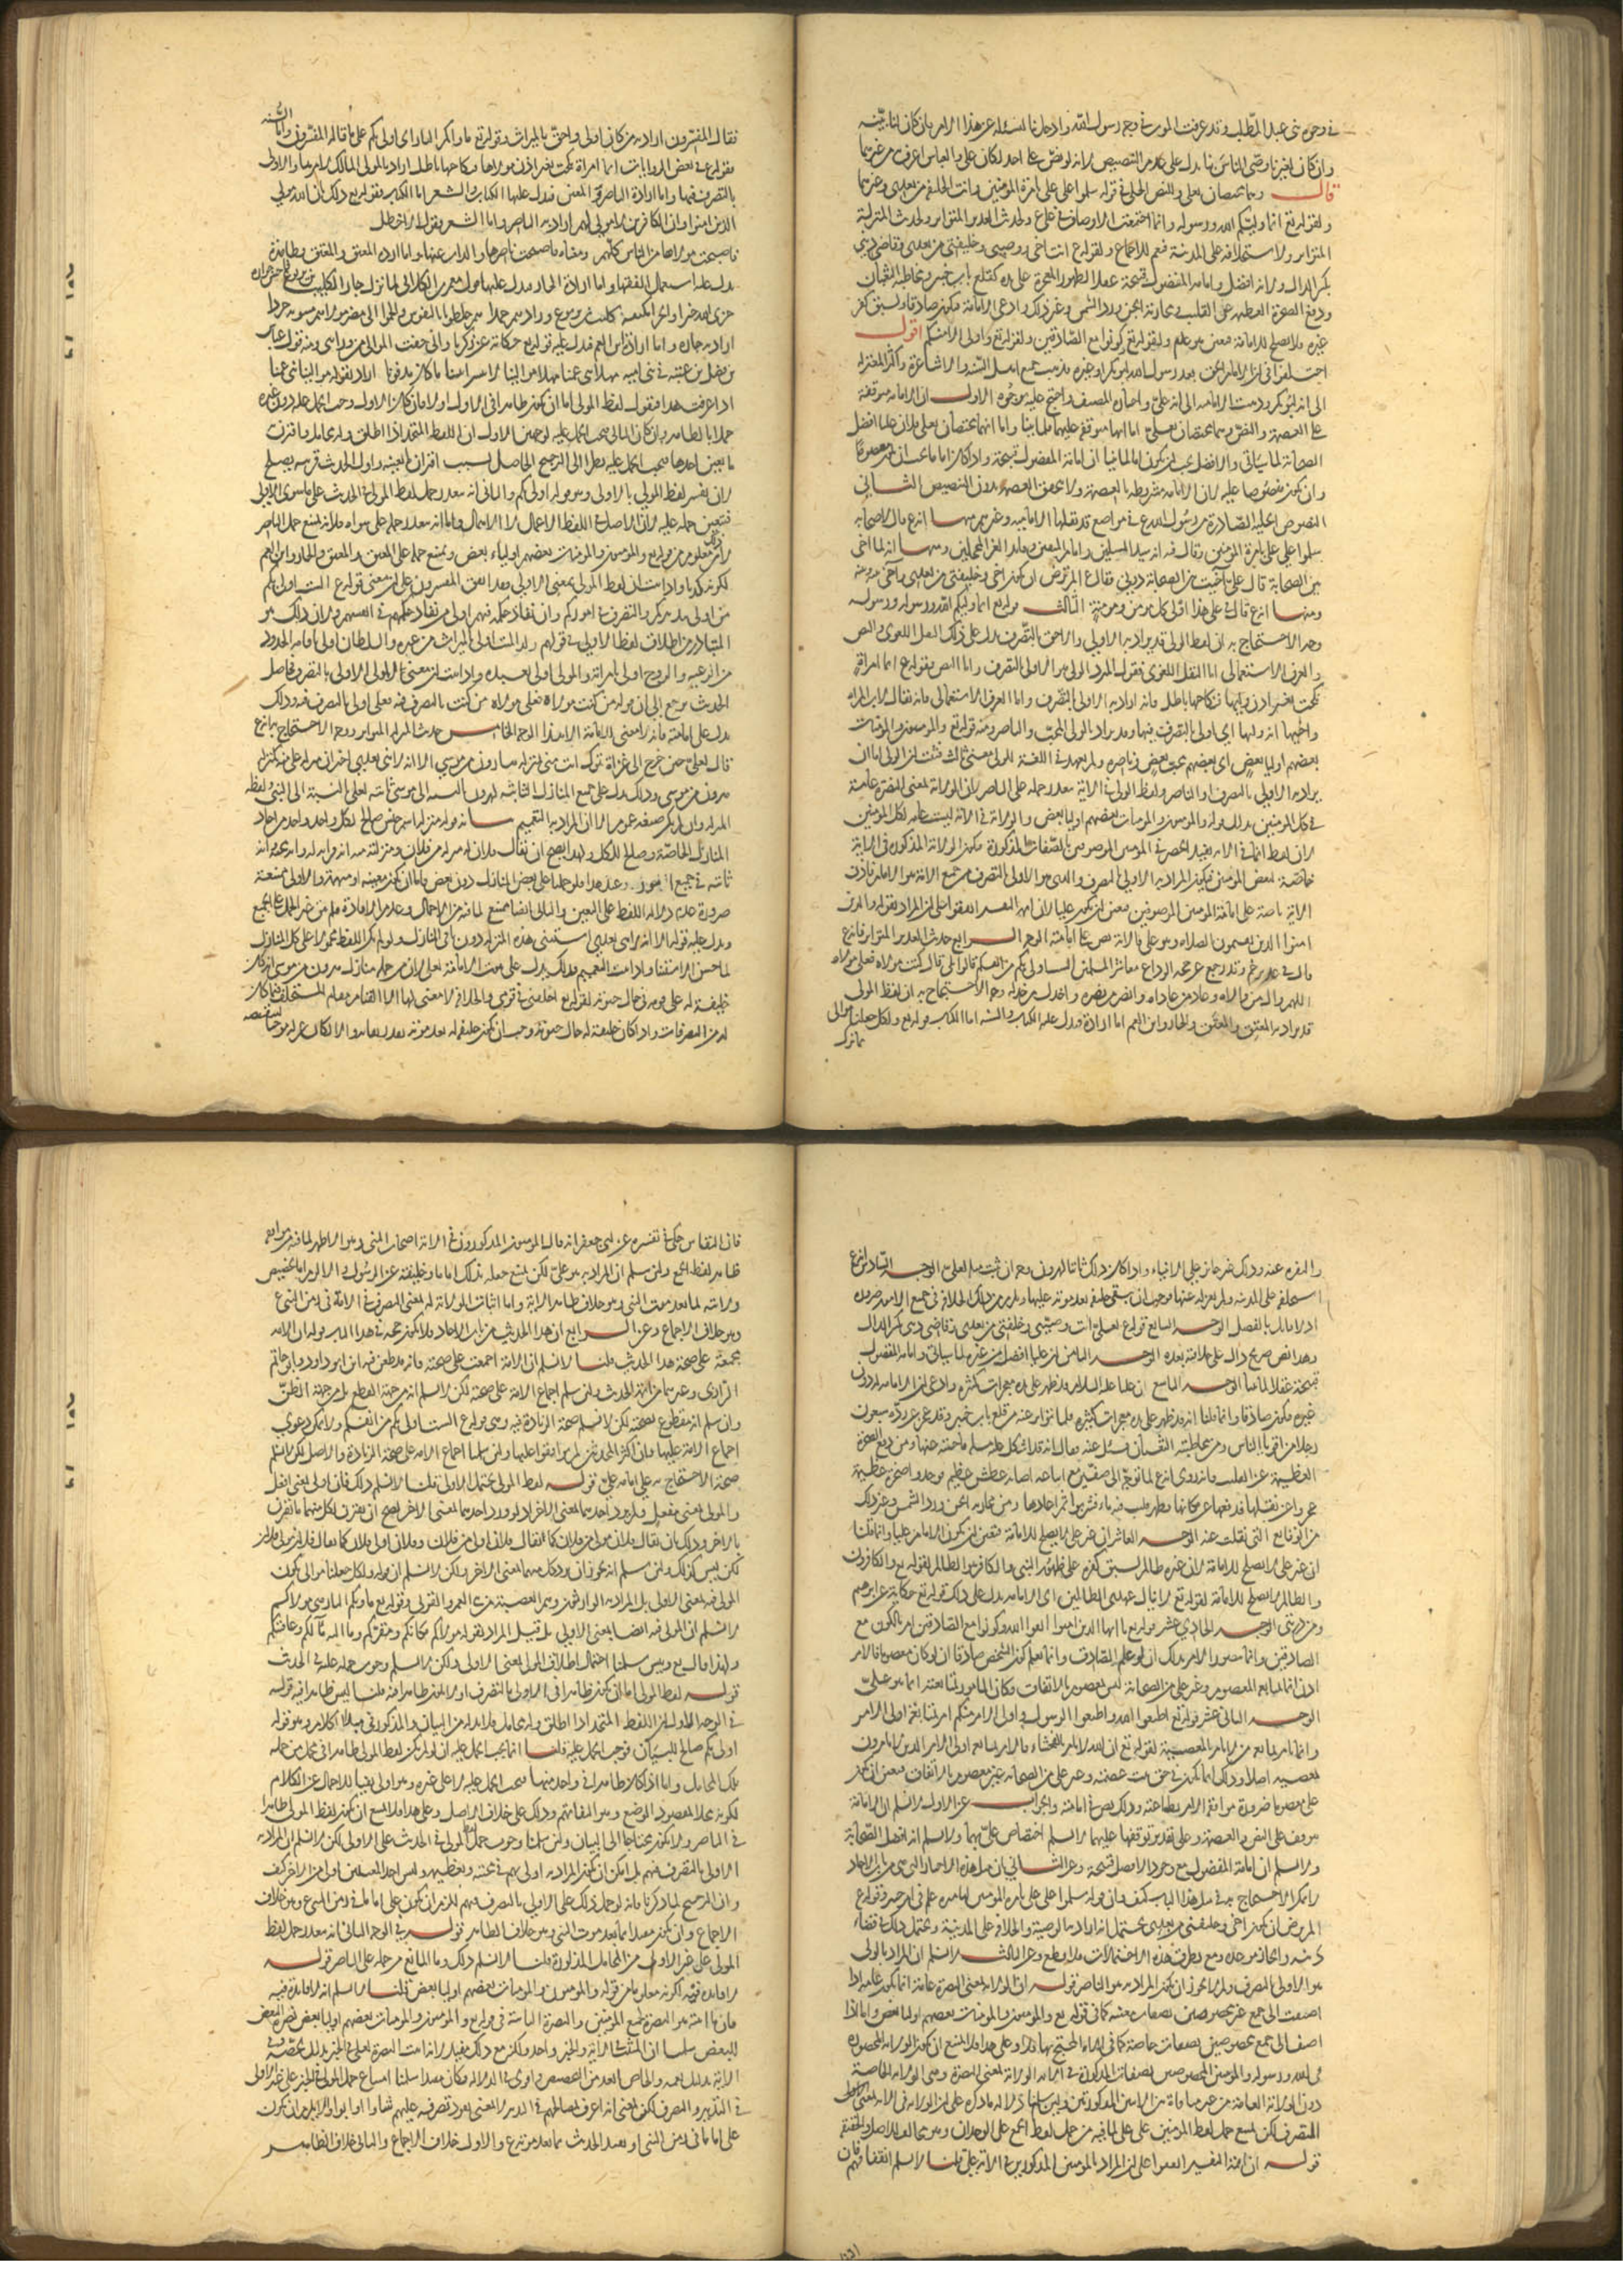 في وجوه بني عبد المطلب وقد عرفت الموت في وجه رسول الله
وان كان لغيرنا وصى الناس بنا يدل على عدم التنصيص لانه لو نص على احد لكان علي والعباس اعرف من غيرهما
قال وهما مختصان بعلي وللنص الجلي في قوله سلموا على علي بامرة المؤمنين وانت الخليفة من بعدي وغيرهما
ولقوله تع انما وليكم الله ورسوله وانما اجتمعت الاوصاف في علي ع ولحديث الغدير المتواتر ولحديث المنزلة
المتواتر ولاستخلافه على المدينة فيعم للاجماع ولقوله ع انت اخي ووصيي وخليفتي من بعدي وقاضي ديني
بكسر الدال ولانه افضل وامامة المفضول قبيحة عقلا ولظهور المعجزة على يده كقلع باب خيبر ومخاطبة الثعبان
ورفع الصخرة العظيمة عن القليب ومحاربة الجن ورد الشمس وغير ذلك وادعى الامامة فيكون صادقا ولسبق كفر
غيره فلا يصلح للامامة فتعين هو علم ولقوله تع كونوا مع الصادقين ولقوله تع واولي الامر منكم اقول
اختلفوا في ان الامام الحق بعد رسول الله ابو بكر او غيره فذهب جميع اهل السنة والاشاعرة واكثر المعتزلة
الى انه ابو بكر وذهبت الامامية الى انه علي واختاره المصنف واحتج عليه بوجوه الاول ان الامامة موقوفة
على العصمة والنص وهما مختصان بعلي اما انها موقوفة عليهما فلما بينا واما انهما مختصان بعلي فلان عليا افضل
الصحابة لما سيأتي والافضل يجب ان يكون اماما لما بينا ان امامة المفضول قبيحة واذا كان اماما يجب ان يكون معصوما
وان يكون منصوصا عليه لان الامامة مشروطة بالعصمة ولا تحقق العصمة بدون التنصيص الثاني
النصوص الجلية الصادرة من رسول الله ع في مواضع قد نقلها الامامية وغيرهم منها انه ع قال لاصحابه
سلموا على علي بامرة المؤمنين وقال فيه انه سيد المسلمين وامام المتقين وقائد الغر المحجلين ومنها انه لما آخى
بين الصحابة قال علي آخيت بين الصحابة دوني فقال ع الم ترض ان تكون اخي وخليفتي من بعدي وآخى بينه وبينه
ومنها انه ع قال في علي هذا ولي كل مؤمن ومؤمنة الثالث قوله تع انما وليكم الله ورسوله
وجه الاحتجاج به ان لفظ الولي قد يراد به الاولى والاحق بالتصرف يدل على ذلك النقل اللغوي والنص
والعرف الاستعمالي اما النقل اللغوي فقول المبرد الولي هو الاولى بالتصرف واما النص فقوله ع ايما امرأة
نكحت بغير اذن وليها فنكاحها باطل فانه اراد به الاولى بالتصرف واما العرف الاستعمالي فانه يقال لاب المرأة
واخيها انه وليها اي اولى بالتصرف فيها وقد يراد بالولي المحب والناصر ومنه قوله تع والمؤمنون والمؤمنات
بعضهم اولياء بعض اي بعضهم محب بعض وناصره ولم يعهد في اللغة للولي معنى ثالث فثبت ان الولي اما ان
يراد به الاولى بالتصرف او الناصر ولفظ الولي في الآية يتعذر حمله على الناصر لان الولاية بمعنى النصرة عامة
في كل المؤمنين بدليل قوله والمؤمنون والمؤمنات بعضهم اولياء بعض والولاية في الآية ليست عامة لكل المؤمنين
لان لفظ انما في الآية يفيد الحصر في المؤمنين الموصوفين بالصفات المذكورة فيكون الولاية المذكورة في الآية
خاصة لبعض المؤمنين فيكون المراد به الاولى بالتصرف والذي هو الاولى بالتصرف من جميع الامة هو الامام فاذن
الآية ناصة على امامة المؤمنين الموصوفين فتعين ان يكون عليا لان ائمة التفسير اتفقوا على ان المراد بقوله والذين
امنوا الذين يقيمون الصلاة هو علي فالآية نص على امامته الوجه الرابع حديث الغدير المتواتر فانه ع
قال في غدير خم وقد رجع عن حجة الوداع معاشر المسلمين الست اولى بكم من انفسكم قالوا بلى قال من كنت مولاه فعلي مولاه
اللهم وال من والاه وعاد من عاداه وانصر من نصره واخذل من خذله وجه الاحتجاج به ان لفظ المولى
قد يراد به المعتق والمعتق والجار وابن العم اما ارادة فيدل عليه الكتاب والسنة اما الكتاب فقوله تع ولكل جعلنا موالي
مما ترك
فقال المفسرون اراد به من كان اولى واحق بالميراث وقوله تع مأواكم النار اي اولى بكم على ما قاله المفسرون واما السنة
فقوله ع في بعض الروايات ايما امرأة نكحت بغير اذن مولاها فنكاحها باطل اراد بالمولى المالك لامرها والاولى
بالتصرف فيها واما ارادة الناصر المعين فيدل عليها الكتاب والشعر اما الكتاب فقوله تع ذلك بان الله مولى
الذين امنوا وان الكافرين لا مولى لهم اراد به الناصر واما الشعر فقول الاخطل
فاصبحت مولاها من الناس كلهم ومعناه فاصبحت ناصرها والذاب عنها واما ارادة المعتق والمعتق فظاهرة
يدل عليه استعمال الفقهاء واما ارادة الجار فيدل عليها قول الكلابي لما نزل جار الكليب
جزى الله خيرا والجزاء بكفه كليب بن يربوع وزادهم حمدا هم خلطونا بالنفوس والجموا الى نصر مولاهم مسومة جردا
اراد به جاره واما ارادة ابن العم فيدل عليه قوله تع حكاية عن زكريا واني خفت الموالي من ورائي ومنه قول
بن عتبة في بني امية مهلا بني عمنا مهلا موالينا لا تنبشوا بيننا ما كان مدفونا اراد بقوله موالينا بني عمنا
اذا عرفت هذا فنقول لفظ المولى اما ان يكون ظاهرا في الاولى او لا فان كان الاول وجب الحمل عليه دون غيره
عملا بالظاهر وان كان الثاني يجب الحمل عليه لوجهين الاول ان اللفظ المتحد اذا اطلق وله محامل واقترن به
ما يعين احدها يجب الحمل عليه نظرا الى الترجيح الحاصل بسبب اقتران ما يعينه واول الحديث قرينة يصلح
لان يفسر لفظ المولى بالاولى وهو قوله اولى بكم والثاني انه يتعذر حمل لفظ المولى في الحديث على ما سوى الاولى
فيتعين حمله عليه لان الاصل في اللفظ الاعمال لا الاهمال واما انه يتعذر حمله على سواه فلانه يمتنع حمله على الناصر
لان معلوم من قوله تع والمؤمنون والمؤمنات بعضهم اولياء بعض ويمتنع حمله على المعتق والمعتق والجار وابن العم
لكونه كذبا واذا ثبت ان لفظ المولى بمعنى الاولى وقد اتفق المفسرون على ان معنى قوله ع الست اولى بكم
من اولى بتدبيركم والتصرف في اموركم وان نفاذ حكمه فيهم اولى من نفاذ حكمهم في انفسهم ولان ذلك هو
المتبادر من اطلاق لفظ الاولى في قولهم ولد الميت اولى بالميراث من غيره والسلطان اولى باقامة الحدود
من الرعية والزوج اولى بامرأته والمولى اولى بعبده واذا ثبت ان معنى الاولى الاولى بالتصرف فحاصل
الحديث يرجع الى ان قوله من كنت مولاه فعلي مولاه من كنت بالتصرف فيه فعلي اولى بالتصرف فيه وذلك
يدل على امامته فانه لا معنى للامامة الا هذا الوجه الخامس حديث المنزلة المتواتر ووجه الاحتجاج به انه ع
قال لعلي حين خرج الى غزاة تبوك انت مني بمنزلة هارون من موسى الا انه لا نبي بعدي اخبر ان منزلة علي منه كمنزلة
هرون من موسى وذلك يدل على ان جميع المنازل الثابتة لهرون بالنسبة الى موسى ثابتة لعلي بالنسبة الى النبي ولفظ
المنزلة وان لم يكن صيغة عموم الا ان المراد به التعميم بيانه قوله منزلة اسم جنس صالح لكل واحد واحد من آحاد
المنازل الخاصة وصالح للكل ولهذا يصح ان يقال فلان له منزلة من فلان ومنزلته منه انه
ثابتة في جميع امور وعند هذا فلو حملنا على بعض المنازل دون بعض فاما ان يكون معينة او مبهمة والاولى ممتنعة
ضرورة عدم دلالة اللفظ على التعيين والثاني ايضا ممتنع لما فيه من الاجمال وعدم الافادة فلم يبق غير الحمل على الجميع
ويدل عليه قوله الا انه لا نبي بعدي استثنى هذه المنزلة دون باقي المنازل ولو لم يكن اللفظ محمولا على كل المنازل
لما حسن الاستثناء واذا ثبت التعميم فذلك يدل على ثبوت الامامة لعلي لان من جملة منازل هرون من موسى انه كان
خليفة له على قومه في حال حيوته لقوله تع اخلفني في قومي والخلافة لا معنى لها الا القيام مقام المستخلف فيما كان
له من التصرفات واذا كان خليفة له حال حيوته وجب ان يكون خليفة له بعد موته بتقدير بقائه والا لكان عزله موجبا لتنقيصه
والنفرة عنه وذلك غير جائز على الانبياء واذا كان ذلك ثابتا لهرون وجب ان يثبت مثله لعلي الوجه السادس انه ع
استخلفه على المدينة ولم يعزله عنها فوجب ان يبقى خليفة بعد موته عليها ويلزم من ذلك الخلافة في جميع الامور ضرورة
اذ لا قائل بالفصل الوجه السابع قوله ع لعلي انت وصيي وخليفتي من بعدي وقاضي ديني بكسر الدال
وهذا نص صريح دال على خلافته بعده الوجه الثامن ان عليا افضل من غيره لما سيأتي وامامة المفضول
قبيحة عقلا لما بينا الوجه التاسع ان عليا عليه السلام قد ظهر على يده معجزات كثيرة وادعى ان الامامة له دون
غيره فيكون صادقا وانما قلنا انه قد ظهر على يده معجزات كثيرة فلما تواتر عنه من قلع باب خيبر وقد عجز عن رده سبعون
رجلا من اقوياء الناس ومن مخاطبته الثعبان فسئل عنه فقال انه اشكل عليه مسئلة فاجبته عنها ومن رفع الصخرة
العظيمة عن القليب فانه روي انه ع لما توجه الى صفين مع اصحابه اصابهم عطش عظيم فوجدوا صخرة عظيمة
عجزوا عن نقلها فدفعها عن مكانها وظهر قليب فيه ماء فشربوا ثم اعادها ومن محاربة الجن ورد الشمس وغير ذلك
من الوقايع التي نقلت عنه الوجه العاشر ان غير علي لا يصلح للامامة فتعين ان يكون الامام عليا وانما قلنا
ان غير علي لا يصلح للامامة لان غيره ظالم لسبق كفره على ظهور النبي والكافر هو الظالم لقوله تع والكافرون
والظالم لا يصلح للامامة لقوله تع لا ينال عهدي الظالمين اي الامامة يدل على ذلك قوله تع حكاية عن ابراهيم
ومن ذريتي الوجه الحادي عشر قوله تع يا ايها الذين امنوا اتقوا الله وكونوا مع الصادقين امر بالكون مع
الصادقين وانما يتصور الامر بذلك ان لو علم الصادق وانما يعلم كون الشخص صادقا ان لو كان معصوما فالامر
اذن انما بمتابعة المعصوم وغير علي من الصحابة ليس بمعصوم بالاتفاق وكان المأمور بمتابعته انما هو علي
الوجه الثاني عشر قوله تع اطيعوا الله واطيعوا الرسول واولي الامر منكم امر بمتابعة اولي الامر
وانما يأمر بمتابعة من لا يأمر بالمعصية لقوله تع ان الله لا يأمر بالفحشاء فالامر بمتابعة اولي الامر الذين لا يأمرون
بمعصية اصلا وذلك انما يكون في حق من ثبت عصمته وغير علي من الصحابة غير معصوم بالاتفاق فتعين ان يكون
علي معصوما ضرورة موافقة الامر بطاعته وذلك نص في امامته والجواب عن الاول لا نسلم ان الامامة
موقوفة على النص والعصمة وعلى تقدير توقفها عليهما لا نسلم اختصاص علي بهما ولا نسلم انه افضل الصحابة
ولا نسلم ان امامة المفضول مع وجود الافضل قبيحة وعن الثاني بان مثل هذه الاخبار التي هي من باب الآحاد
لا يمكن الاحتجاج به في مثل هذا الباب كيف وان قوله سلموا على علي بامرة المؤمنين
الم ترض ان تكون اخي وخليفتي من بعدي يحتمل انه اراد به الوصية والخلافة على المدينة ويحتمل ذلك في قضاء
دينه وانجاز موعده ومع تطرق هذه الاحتمالات فلا قطع وعن الثالث لا نسلم ان المراد بالولي
هو الاولى بالتصرف ولم لا يجوز ان يكون المراد به هو الناصر قوله ان الولاية بمعنى النصرة عامة انما يكون عامة اذا
اضيفت الى جمع غير مخصوصين بصفات معينة كما في قوله تع والمؤمنون والمؤمنات بعضهم اولياء بعض واما اذا
اضيف الى جمع مخصوصين بصفات خاصة كما في الآية المحتج بها فلا وعلى هذا فلا يمتنع ان يكون الولاية المحصورة
في الله ورسوله والمؤمنين المخصوصين بصفات المذكورة في الآية الولاية بمعنى النصرة وهي الولاية الخاصة
دون الولاية العامة
المتصرف لكن يمتنع حمل لفظ المؤمنين على علي لما فيه من حمل لفظ الجمع على الوحدان وهو مخالف للاصل والحقيقة
قوله ان ائمة التفسير اتفقوا على ان المراد بالمؤمنين المذكورين في الآية علي قلنا لا نسلم اتفاقهم فان
فان النقاش حكى في تفسيره عن ابي جعفر انه قال المؤمنون المذكورون في الآية اصحاب النبي وهو الاظهر لما فيه من موافقة
ظاهر لفظ الجمع ولئن سلم ان المراد به هو علي لكن يمتنع حمله بذلك اماما وخليفة عن الرسول والا لزم اما تخصيص
ولايته لما بعد موت النبي وهو خلاف ظاهر الآية واما اثبات الولاية له بمعنى التصرف في الامة في زمن النبي ع
وهو خلاف الاجماع وعن الرابع ان هذا الحديث من باب الآحاد فلا يكون حجة في هذا الباب قوله ان الامة
مجمعة على صحة هذا الحديث قلنا لا نسلم ان الامة اجمعت على صحته فانه قد طعن فيه ابن ابو داود وابو حاتم
الرازي وغيرهما من ائمة الحديث ولئن سلم اجماع الامة على صحته لكن لا نسلم انه من جهة القطع بل من جهة الظن
وان سلم انه مقطوع بصحته لكن لا نسلم صحة الزيادة فيه وهي قوله ع الست اولى بكم من انفسكم ولا يمكن دعوى
اجماع الامة عليها فان اكثر المحدثين لم يتفقوا عليها ولئن سلمنا اجماع الامة على صحة الزيادة والاصل لكن لا نسلم
صحة الاحتجاج به على امامة علي قوله لفظ المولى يحتمل الاولى قلنا لا نسلم ذلك فان اولى بمعنى افعل
والمولى بمعنى مفعل ولم يرد احدهما بمعنى الآخر اذ لو ورد احدهما بمعنى الآخر لصح ان يقترن بكل منهما ما يقترن
بالآخر وذلك بان يقال فلان مولى من فلان كما يقال فلان اولى من فلان وفلان اولى فلان كما يقال فلان مولى فلان
لكن ليس كذلك ولئن سلم انه يجوز ان يرد كل منهما بمعنى الآخر ولكن لا نسلم ان قوله ولكل جعلنا موالي يكون
المولى فيه بمعنى الاولى بل المراد به الوارث وهم العصبة وقوله تع مأواكم النار هي مولاكم
لا نسلم ان المولى فيه ايضا بمعنى الاولى بل قيل المراد بقوله مولاكم مكانكم ومقركم وما اليه مآلكم وعاقبتكم
ولهذا قال تع وبئس سلمنا احتمال اطلاق المولى بمعنى الاولى ولكن لا نسلم وجوب حمله عليه في الحديث
قوله لفظ المولى اما ان يكون ظاهرا في الاولى بالتصرف او لا يكون ظاهرا فيه قلنا ليس ظاهرا فيه قوله
في الوجه الاول ان اللفظ المتحد اذا اطلق وله محامل فلا بد له من البيان والمذكور في مبدأ الكلام وهو قوله
اولى بكم صالح للبيان فوجب الحمل عليه قلنا انما يجب الحمل عليه ان لو لم يكن لفظ المولى ظاهرا في محمل من جملة
تلك المحامل واما اذا كان ظاهرا في واحد منها يجب الحمل عليه لا على غيره وهو اولى نفيا للاجمال عن الكلام
لكونه مخلا لمقصود الوضع وهو التفاهم وذلك على خلاف الاصل وعلى هذا فلا يمتنع ان يكون لفظ المولى ظاهرا
في الناصر ولا يكون محتاجا الى البيان ولئن سلمنا وجوب حمل لفظ المولى في الحديث على الاولى لكن لا نسلم ان المراد به
الاولى بالتصرف فيهم بل امكن ان يكون المراد به اولى بهم في محبته وتعظيمه وليس احد المعنيين اولى من الآخر كيف
وان الترجيح لما ذكرنا فانه لو حمل ذلك على الاولى بالتصرف فيهم للزم ان يكون علي اماما في زمن النبي ع وهو خلاف
الاجماع وان يكون مقيدا بما بعد موت النبي وهو خلاف الظاهر قوله في الوجه الثاني انه يتعذر حمل لفظ
المولى على غير الاولى من المحامل المذكورة قلنا لا نسلم ذلك وما المانع من حمله على الناصر قوله
لا فائدة فيه لكونه معلوما من قوله والمؤمنون والمؤمنات بعضهم اولياء بعض قلنا لا نسلم انه لا فائدة فيه
فان ما اثبته هو النصرة لجميع المؤمنين والنصرة الثابتة في قوله تع والمؤمنون والمؤمنات بعضهم اولياء بعض نصرة البعض
للبعض سلمنا ان المثبت في الآية والخبر واحد ولكن مع ذلك مفيد لانه اثبت النصرة لعلي في الخبر بدليل يخصه وفي
الآية بدليل يعمه والخاص ابعد من التخصيص واقوى في الدلالة وكان مفيدا سلمنا امتناع حمل المولى في الخبر على غير الاولى
في التدبير والتصرف لكن بمعنى انه اعرف بمصالحهم في التدبير لا بمعنى نفوذ تصرفه عليهم شاؤا او ابوا والا لزم ان يكون
علي اماما في زمن النبي او تقييد الحديث بما بعد موته ع والاول خلاف الاجماع والثاني خلاف الظاهر